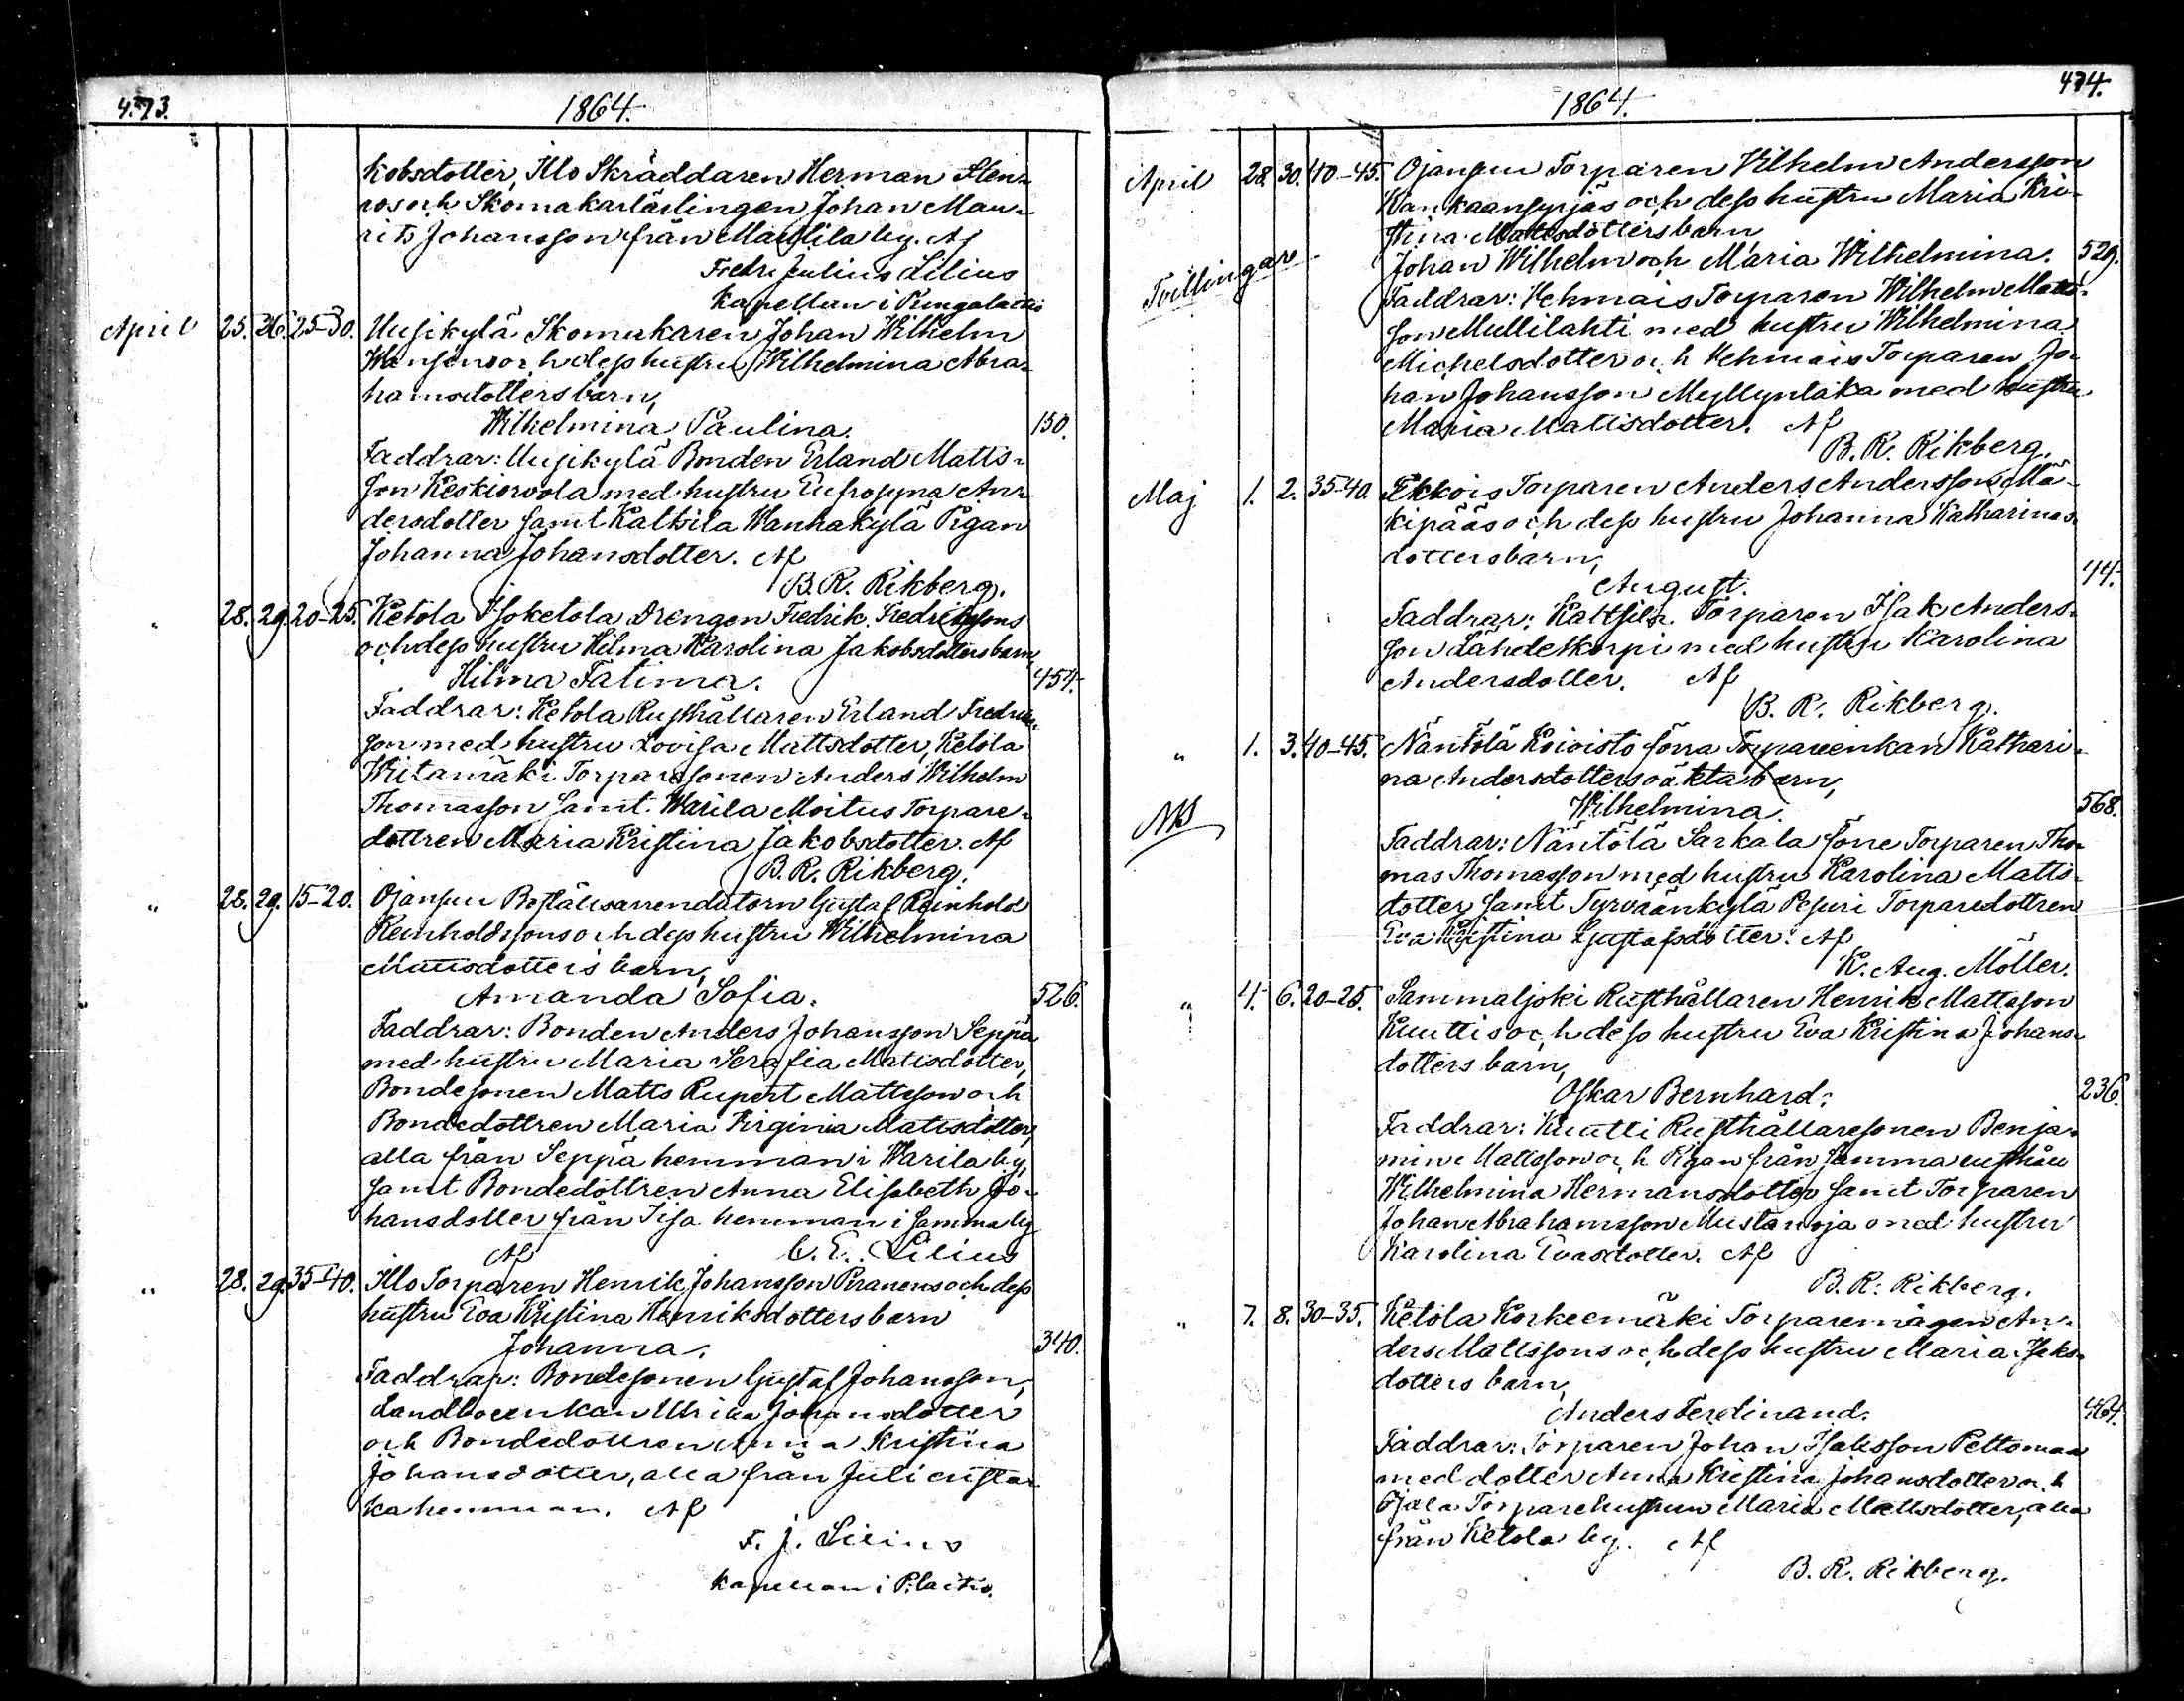 473.
1864.
kobsdotter, Illo Skräddaren Herman Sten-
ros och Skomakarlärlingen Johan Mau-
rits Johansson från Mauttila by. Af
Fredr. Julius Lilius
Kapellan i Pungalaitio
April 25. 26. 25-30. Uusikylä Skomakaren Johan Wilhelm
och dess hustru Wilhelmina Abra-
hamsdotters barn,
Wilhelmina Paulina. 150.
Faddrar: Uusikylä Bonden Erland Matts-
son Keskiorvola med hustru Eufrosyna An-
dersdotter samt Kaltsila Wanhakylä Pigan
Johanna Johansdotter. Af
B. R. Rikberg.
" 28. 29. 20-25. Ketola Isoketola Drengen Fredrik Fredrikssons
och dess hustru Hilma Karolina Jakobsdotters barn
Hilma Fatima. 454.
Faddrar: Ketola Rusthållaren Erland Fredriks-
son med hustru Lovisa Mattsdotter, Ketola
Wiitamäki Torparesonen Anders Wilhelm
Thomasson samt Warila Moitus Torpare-
dottren Maria Kristina Jakobsdotter. Af
B. R. Rikberg.
" 28. 29. 15-20. Ojansuu Boställsarrendatorn Gustaf Reinhold
Reinholdssons och dess hustru Wilhelmina
Mattsdotters barn,
Amanda Sofia. 526.
Faddrar: Bonden Anders Johansson Seppä
med hustru Maria Serafia Mattsdotter,
Bondesonen Matts Rupert Mattsson och
Bondedottren Maria Virginia Mattsdotter,
alla från Seppä hemman i Warila by,
samt Bondedottren Anna Elisabeth Jo-
hansdotter från Iisa hemman i samma by
Af C. E. Lilius
" 28. 29. 35-40. Illo Torparen Henrik Johansson Piranens och dess
hustru Eva Kristina Henriksdotters barn
Johanna. 340.
Faddrar: Bondesonen Gustaf Johansson,
Landboenkan Ulrika Johansdotter
och Bondedottren Anna Kristina
Johansdotter, alla från Juli
ka hemman. Af
F. J. Lilius
Kapellan i P:laitio.
474.
1864.
April 28. 30. 40-45. Ojansuu Torparen Wilhelm Andersson
Kankaansyrjäs och dess hustru Maria Kri-
stina Mattsdotters barn,
Tvillingar Johan Wilhelm och Maria Wilhelmina. 529.
Faddrar: Vehmais Torparen Wilhelm Matts-
son Mullilahti med hustru Wilhelmina
Michelsdotter och Vehmais Torparen Jo-
han Johansson Myllynlaka med hustru
Maria Mattsdotter. Af
B. R. Rikberg.
Maj 1. 2. 35-40. Ekkois Torparen Anders Anderssons Mä-
kipääs och dess hustru Johanna Katharinas-
dotters barn,
August. 44.
Faddrar: Kaltsila Torparen Isak Anders-
son Lähdetkorpi med hustru Karolina
Andersdotter. Af
B. R. Rikberg.
" 1. 3. 40-45. Näntölä Koivisto förra Torpareenkan Kathari-
na Andersdotters oäkta barn,
NB Wilhelmina. 568.
Faddrar: Näntölä Sarkala förre Torparen Tho-
mas Thomasson med hustru Karolina Matts-
dotter samt Tyrväänkylä Pesuri Torparedottren
Eva Kristina Gustafsdotter. Af
K. Aug. Möller.
" 4. 6. 20-25. Sammaljoki Rusthållaren Henrik Mattsson
Kuuttis och dess hustru Eva Kristina Johans-
dotters barn,
Oskar Bernhard. 236.
Faddrar: Kuutti Rusthållaresonen Benja-
min Mattsson och Pigan från samma rusthåll
Wilhelmina Hermansdotter samt Torparen
Johan Abrahamsson Mustanoja med hustru
Karolina Evasdotter. Af
B. R. Rikberg.
" 7. 8. 30-35. Ketola Korkeemäki Torparemågen An-
ders Mattssons och dess hustru Maria Isaks-
dotters barn,
Anders Ferdinand. 464.
Faddrar: Torparen Johan Isaksson Peltomaa
med dotter Anna Kristina Johansdotter och
Ojala Torparehustrun Maria Mattsdotter, alla
från Ketola by. Af
B. R. Rikberg.